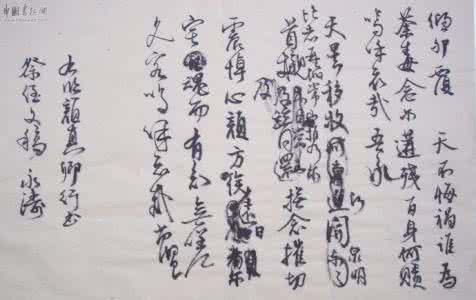 中国书法网
傾卵覆 天不悔禍誰為
荼毒念爾遘殘百身何贖
嗚乎哀哉吾承
天澤移牧河關泉明
比者再陷常山攜爾
首櫬及茲同還撫念摧切
震悼心顏方俟遠日
宅魂而有知無嗟
久客嗚呼哀哉尚饗
右臨顏真卿行書
祭侄文稿 永濤